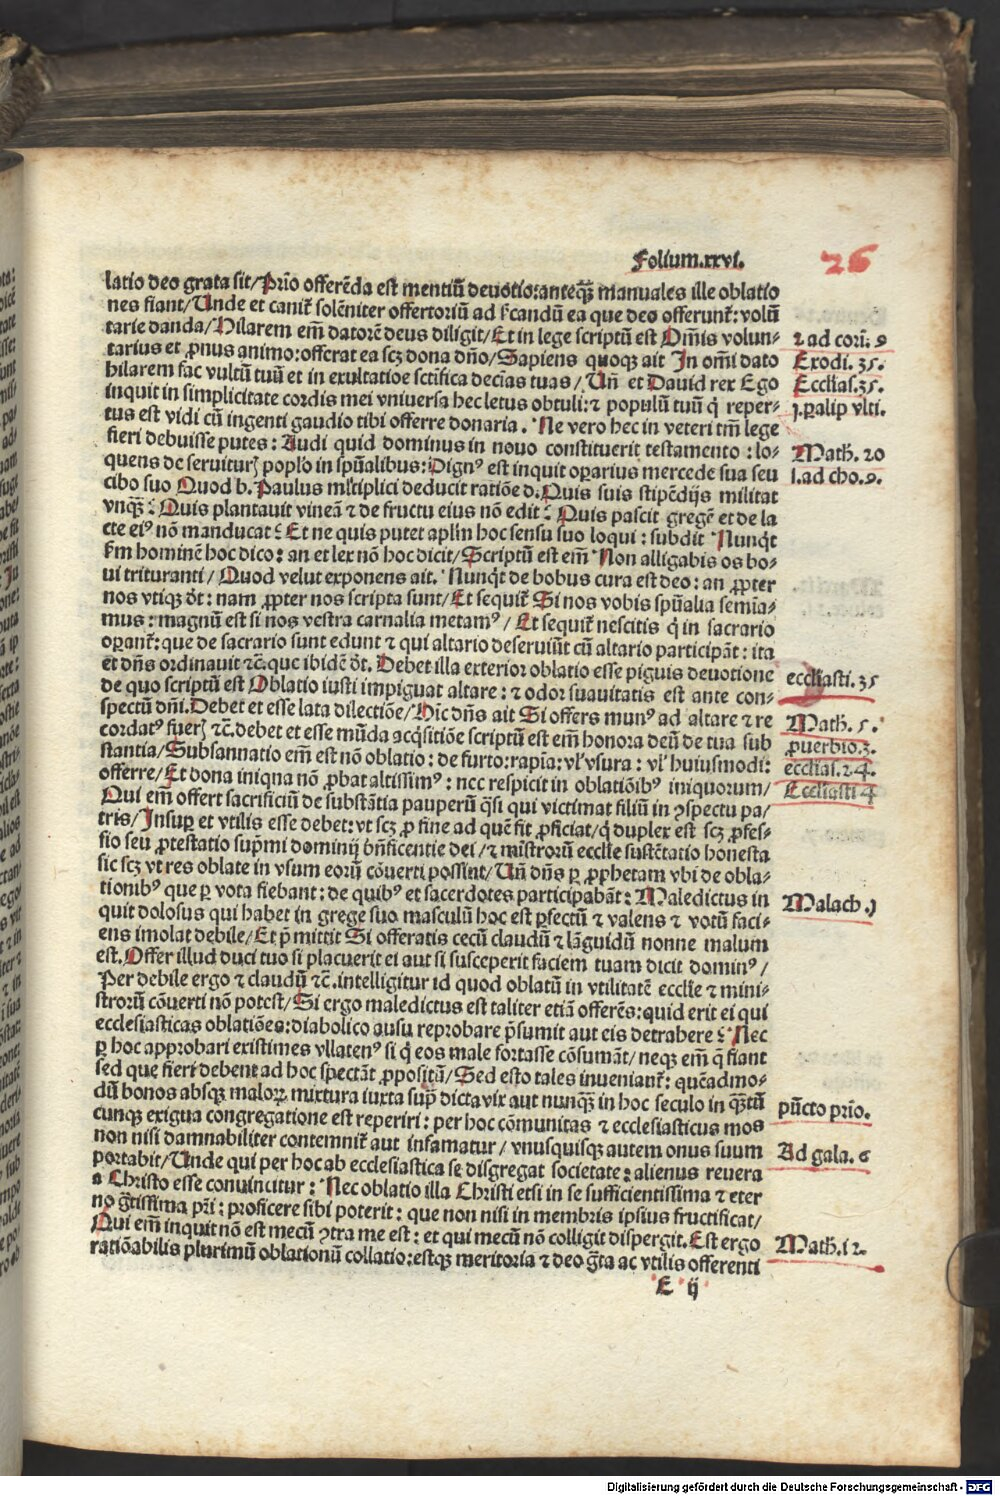 Folium.xxvi. 26
latio deo grata sit/Prīo offerēda est mentiū deuotio:anteqȝ manuales ille oblatio
nes fiant/Unde et canit̄ solēniter offertoriū ad ſcandū ea que deo offerunt̄: volū
tarie danda/Hilarem em̄ datorē deus diligit/Et in lege scriptū est Om̄is volun⸗
tarius et ꝓnus animo:offerat ea scȝ dona dn̄o/Sapiens quoqȝ ait In om̄i dato
hilarem fac vultū tuū et in exultatiōe sctīfica decīas tuas/Un̄ et Dauid rex Ego
inquit in simplicitate cordis mei vniuersa hec letus obtuli:⁊ populū tuū q̇ reper⸗
tus est vidi cū ingenti gaudio tibi offerre donaria. Ne vero hec in veteri tm̄ lege
fieri debuisse putes: Audi quid dominus in nouo constituerit testamento: lo⸗
quens de seruiturꝝ pop̄lo in spūalibus:Dignꝰ est inquit oꝑarius mercede sua seu
cibo suo Quod b. Paulus ml̄tiplici deducit ratiōe d. Quis suis stipēdijs militat
vnqȝ? Quis plantauit vineā ⁊ de fructu eius nō edit? Quis pascit gregē et de la
cte eiꝰ nō manducat? Et ne quis putet apl̄m hoc sensu suo loqui: subdit Nunq̇t
ſm hominē hoc dico: an et lex nō hoc dicit/Scriptū est em̄ Non alligabis os bo⸗
ui trituranti/Quod velut exponens ait. Nunq̇t de bobus cura est deo: an ꝓpter
nos vtiqȝ d̄t: nam ꝓpter nos scripta sunt/Et sequit̄ Si nos vobis spūalia semīa⸗
mus: magnū est si nos vestra carnalia metamꝰ/Et sequit̄ nescitis q̇ in sacrario
oꝑant̄: que de sacrario sunt edunt ⁊ qui altario deseruiūt cū altario participāt: ita
et dn̄s ordinauit ⁊c̄. que ibidē d̄t. Debet illa exterior oblatio esse piguis deuotione
de quo scriptū est Oblatio iusti impiguat altare: ⁊ odor suauitatis est ante con⸗
spectū dn̄i. Debet et esse lata dilectiōe/Hic dn̄s ait Si offers munꝰ ad altare ⁊ re
cordatꝰ fuerꝭ ⁊c̄. debet et esse mūda acq̇sitiōe scriptū est em̄ honora deū de tua sub
stantia/Subsannatio em̄ est nō oblatio: de furto:rapīa: vl̄ vsura: vl̄ huiusmodi:
offerre/Et dona iniqna nō ꝓbat altissimꝰ: nec respicit in oblatiōibꝰ iniquorum/
Qui em̄ offert sacrificiū de substātia pauperū q̇si qui victimat filiū in ꝯspectu pa/
tris/Insuꝑ et vtilis esse debet: vt scȝ ꝓ fine ad quē fit ꝓficiat/q̇ duplex est scȝ ꝓfes⸗
sio seu ꝓtestatio sup̄mi dominij bn̄ficentie dei/⁊ mīstrorū eccl̄ie sustētatio honesta
sic scȝ vt res oblate in vsum eorū cōuerti possint/Un̄ dn̄s ꝑ ꝓphetam vbi de obla⸗
tionibꝰ que ꝑ vota fiebant: de quibꝰ et sacerdotes participabāt: Maledictus in
quit dolosus qui habet in grege suo masculū hoc est ꝑfectū ⁊ valens ⁊ votū faci⸗
ens imolat debile/Et p̄mittit Si offeratis cecū claudū ⁊ lāguidū nonne malum
est. Offer illud duci tuo si placuerit ei aut si susceperit faciem tuam dicit dominꝰ/
Per debile ergo ⁊ claudū ⁊c̄. intelligitur id quod oblatū in vtilitatē eccl̄ie ⁊ mini⸗
strorū cōuerti nō potest/Si ergo maledictus est taliter etiā offerēs: quid erit ei qui
ecclesiasticas oblatiōes:diabolico ausu reprobare p̄sumit aut eis detrahere? Nec
ꝑ hoc approbari existimes vllatenꝰ si q̇ eos male fortasse cōsumāt/neqȝ em̄ q̄ fiant
sed que fieri debent ad hoc spectāt ꝓpositū/Sed esto tales inueniant̄: quēadmo⸗
dū bonos absqȝ maloꝝ mixtura iuxta sup̄ dicta vix aut nunqȝ in hoc seculo in q̄tū
cunqȝ exigua congregatione est reperiri: per hoc cōmunitas ⁊ ecclesiasticus mos
non nisi damnabiliter contemnit̄ aut infamatur/vnusquisqȝ autem onus suum
portabit/Unde qui per hoc ab ecclesiastica se disgregat societate: alienus reuera
a Christo esse conuincitur: Nec oblatio illa Christi etsi in se sufficientissima ⁊ eter
no g̃tissima pr̄i: proficere sibi poterit: que non nisi in membris ipsius fructificat/
Qui em̄ inquit nō est mecū ꝯtra me est: et qui mecū nō colligit dispergit. Est ergo
ratiōabilis plurimū oblationū collatio: estqȝ meritoria ⁊ deo g̃ta ac vtilis offerenti
E ij
2 ad corī. 9
Exodi. 35.
Eccl̄ias.35.
j.ꝑalip vlti.
Math. 20
1.ad cho.9.
eccl̄iasti. 35
Math. 5.
ꝓuerbio.3.
eccl̄ias.24.
Eccl̄iasti 4
Malach.j
pūcto prīo.
Ad gala. 6
Math.12.
Digitalisierung gefördert durch die Deutsche Forschungsgemeinschaft - DFG